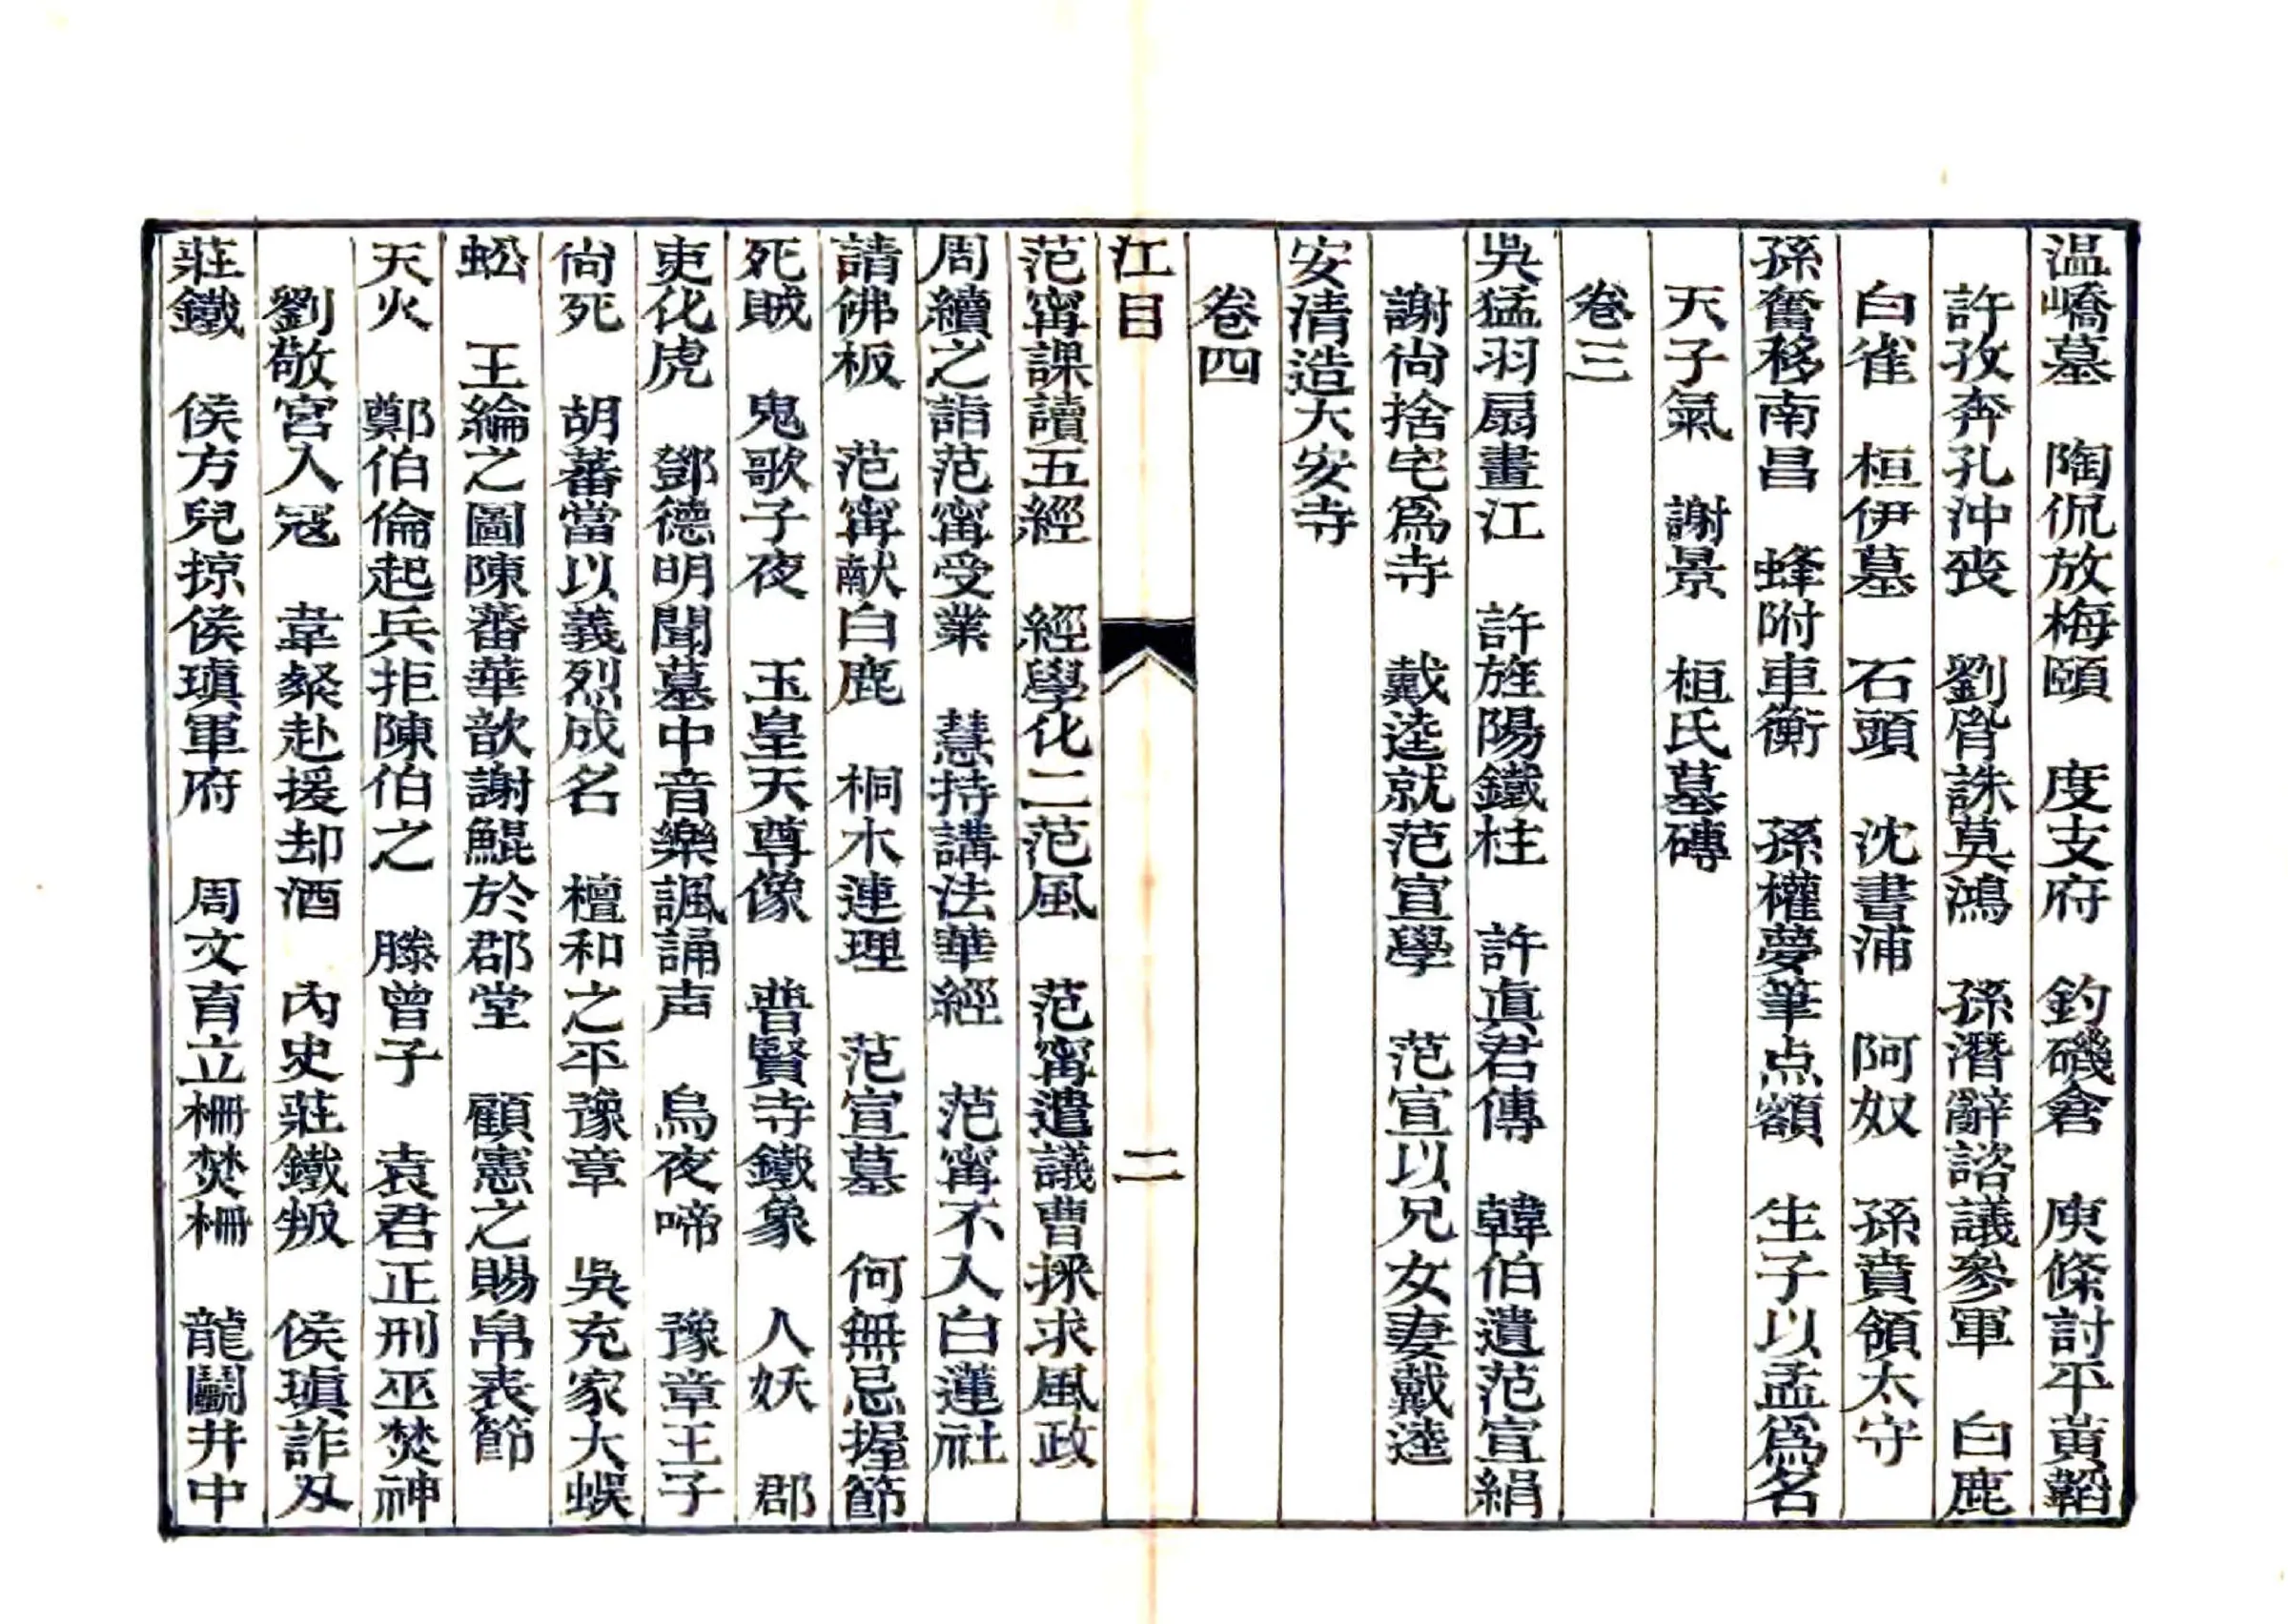 温嶠墓　陶侃放梅頤　度支府　釣磯倉　庾條討平黃韜
許孜奔孔沖喪　劉胤誅莫鴻　孫潛辭諮議參軍　白鹿
白雀　桓伊墓　石頭　沈書浦　阿奴　孫賁領太守
孫奮移南昌　蜂附車衡　孫權夢筆点額　生子以孟爲名
天子氣　謝景　桓氏墓磚
卷三
吳猛羽扇畫江　許旌陽鐵柱　許眞君傳　韓伯遺范宣絹
謝尙捨宅爲寺　戴逵就范宣學　范宣以兄女妻戴逵
安清造大安寺
卷四
江目　二
范甯課讀五經　經學化二范風　范甯遣議曹採求風政
周續之詣范甯受業　慧持講法華經　范甯不入白蓮社
請佛板　范甯献白鹿　桐木連理　范宣墓　何無忌握節
死賊　鬼歌子夜　玉皇天尊像　普賢寺鐵象　人妖　郡
吏化虎　鄧德明聞墓中音樂諷誦声　烏夜啼　豫章王子
尙死　胡蕃當以義烈成名　檀和之平豫章　吳充家大蜈
蚣　王綸之圖陳蕃華歆謝鯤於郡堂　顧憲之賜帛表節
天火　鄭伯倫起兵拒陳伯之　滕曾子　袁君正刑巫焚神
劉敬宮入寇　韋粲赴援却酒　內史莊鐵叛　侯瑱詐及
莊鐵　侯方兒掠侯瑱軍府　周文育立柵焚柵　龍鬭井中